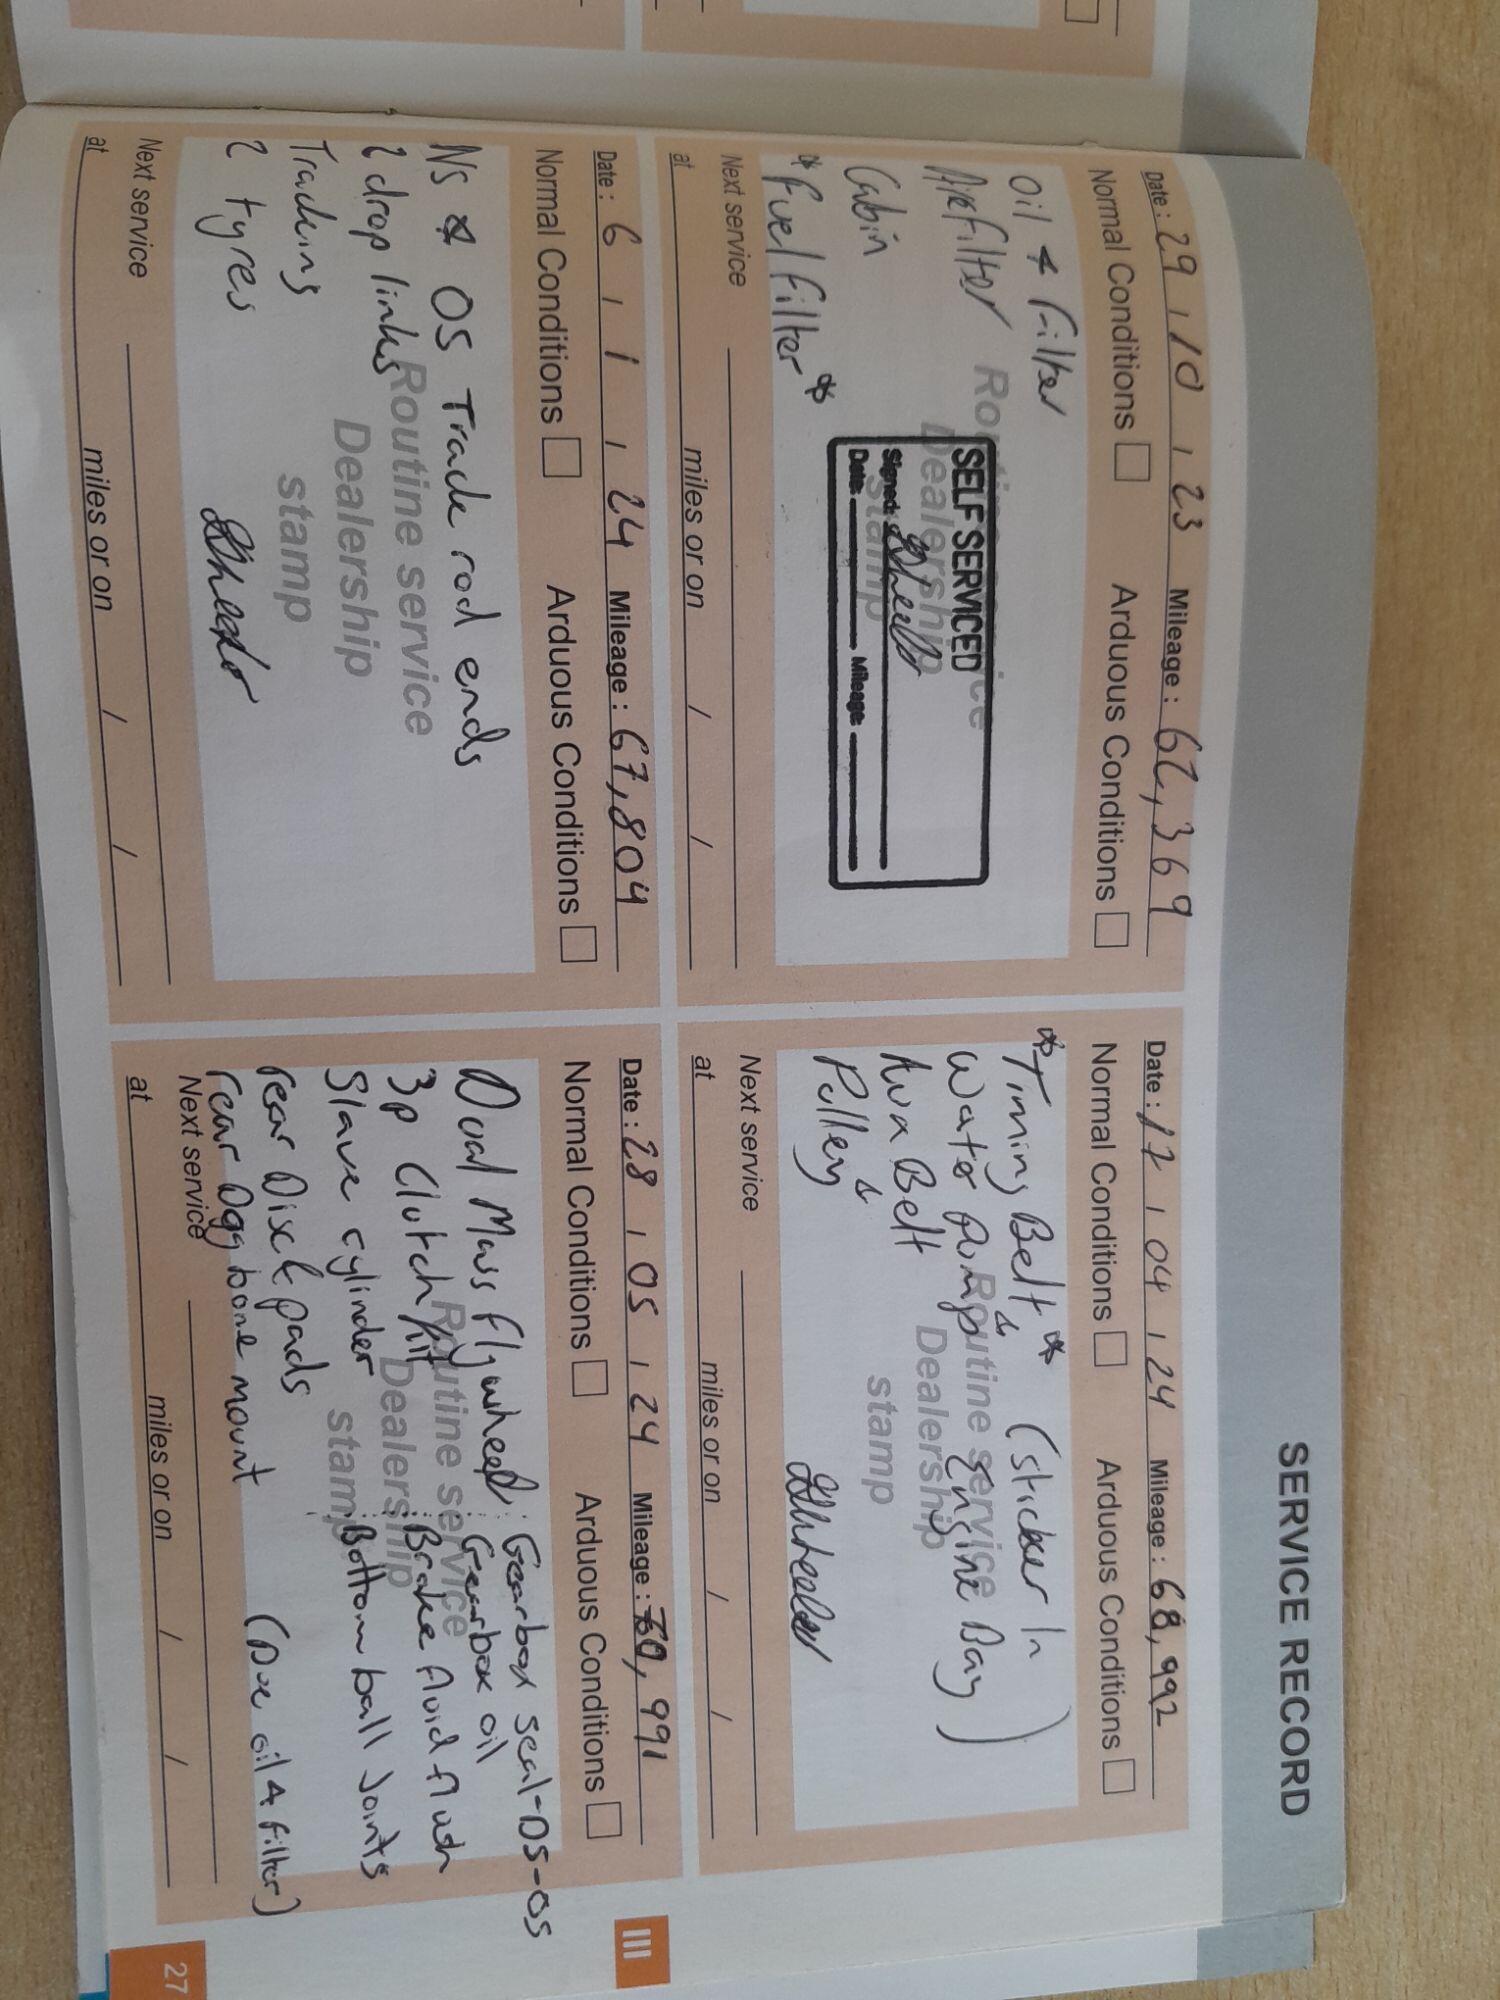 SERVICE RECORD
Date : 29 / 10 / 23 Mileage : 62,369
Normal Conditions Arduous Conditions
Oil & Filter
Airfilter
Cabin
*Fuel filter*
Routine service
Dealership
stamp
SELF SERVICED
Signed:
Date: Mileage:
Next service
at miles or on / /
Date : 17 / 04 / 24 Mileage : 68,992
Normal Conditions Arduous Conditions
*Timing Belt* (Sticker In
Water Pump & Engine Bay)
Aux Belt
& Pulley
Routine service
Dealership
stamp
Next service
at miles or on / /
Date : 6 / 1 / 24 Mileage : 67,804
Normal Conditions Arduous Conditions
NS & OS Track rod ends
2 drop links
Tracking
2 tyres
Routine service
Dealership
stamp
Next service
at miles or on / /
Date : 28 / 05 / 24 Mileage : 70,991
Normal Conditions Arduous Conditions
Dual Mass flywheel : Gearbox seal-DS-OS
3p Clutch kit : Gearbox oil
Slave cylinder : Brake fluid flush
rear Disc & pads : Bottom ball Joints
rear Dogg bone mount (Due oil & filter)
Routine service
Dealership
stamp
Next service
at miles or on / /
III
27